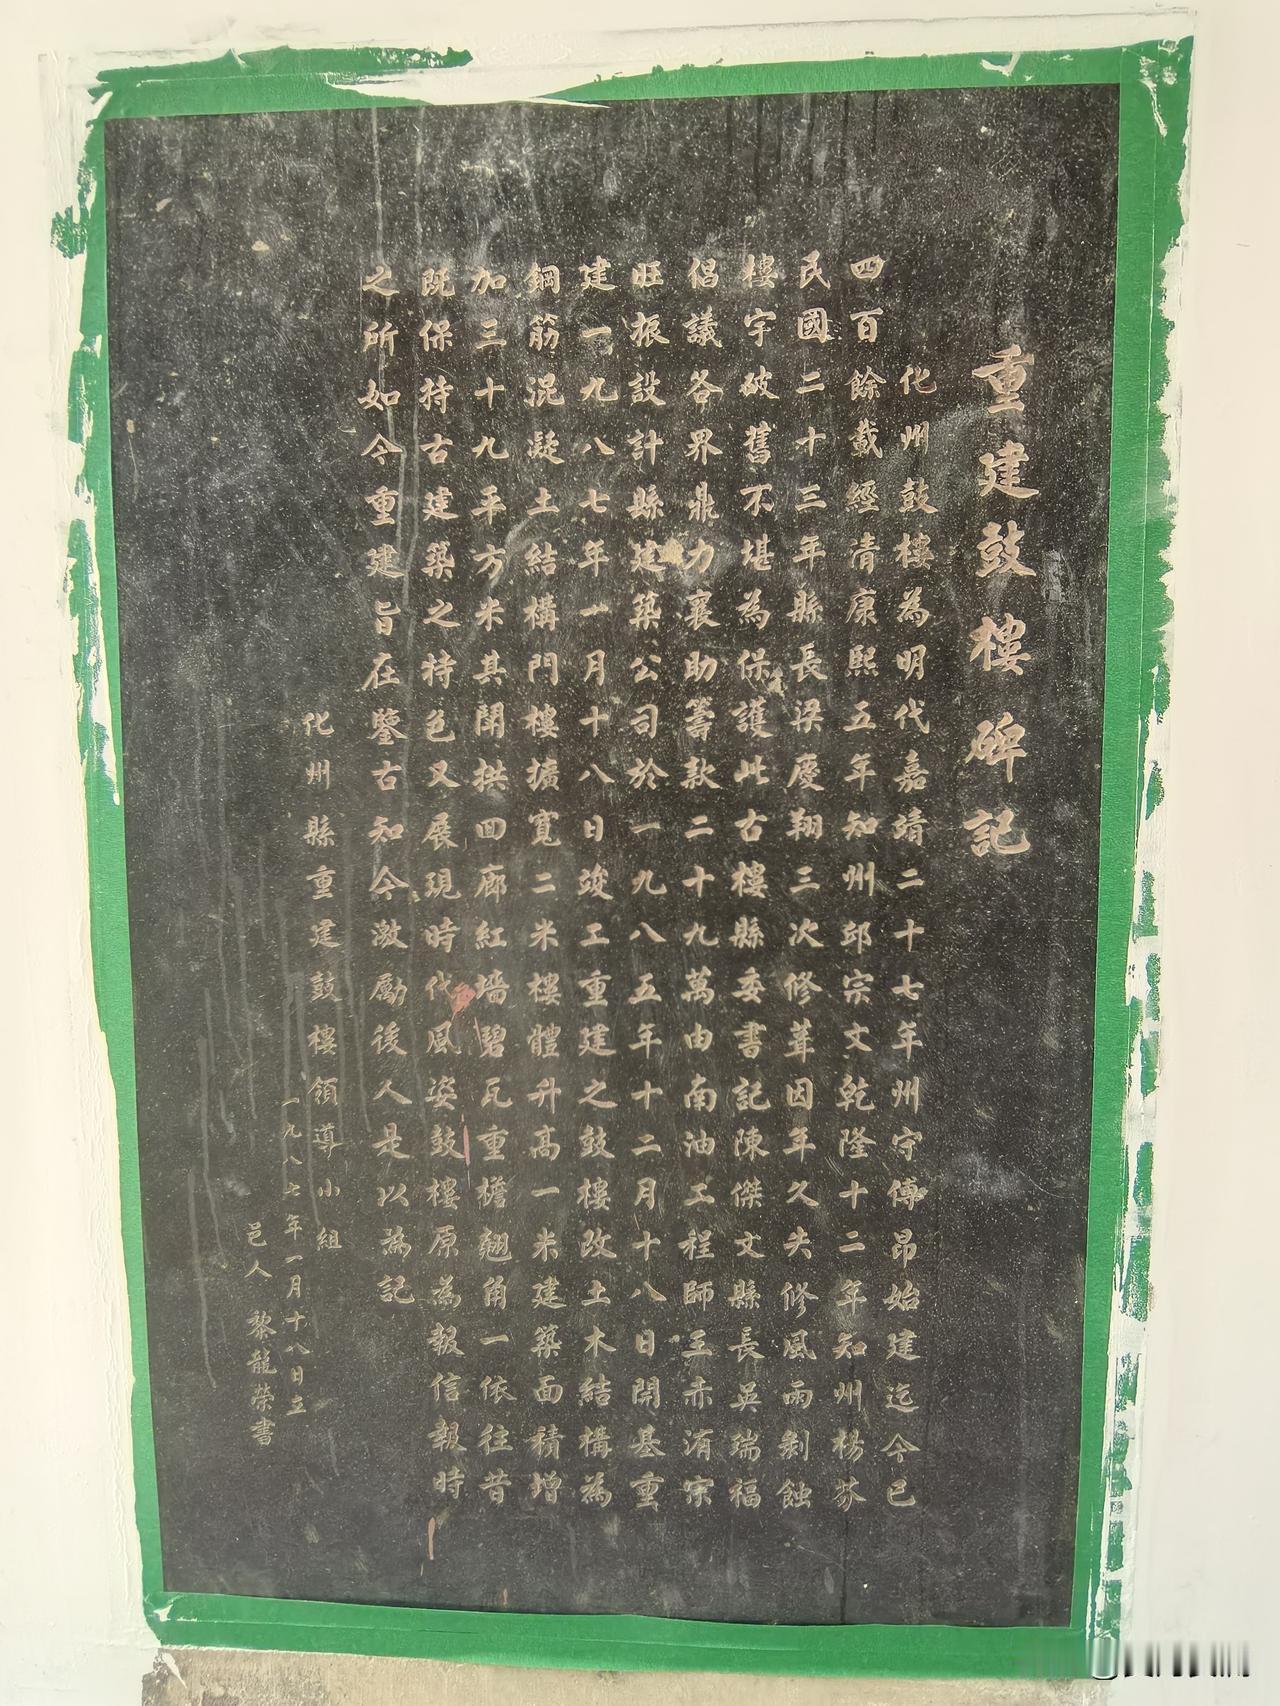 重建鼓樓碑記
化州鼓樓為明代嘉靖二十七年州守傅昂始建迄今已
四百餘載經清康熙五年知州邱宗文乾隆十二年知州楊芬
民國二十三年縣長梁慶翔三次修葺因年久失修風雨剝蝕
樓宇破舊不堪為保護此古樓縣委書記陳傑文縣長吳瑞福
倡議各界鼎力襄助籌款二十九萬由南油工程師王赤洧宗
旺振設計縣建築公司於一九八五年十二月十八日開基重
建一九八七年一月十八日竣工重建之鼓樓改土木結構為
鋼筋混凝土結構門樓擴寬二米樓體升高一米建築面積增
加三十九平方米其閘拱回廊紅墻碧瓦重檐翹角一依往昔
既保持古建築之特色又展現時代風姿鼓樓原為報信報時
之所如今重建旨在鑒古知今激勵後人是以為記
化州縣重建鼓樓領導小組
一九八七年一月十八日立
邑人 黎龍榮書